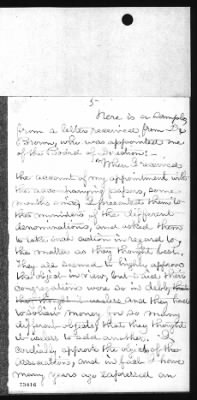 5-
Here is a sample,
from a letter received from Dr
Brown, who was appointed one
of the Board of Direction:-
"When I received
the account of my appointment with
the accompanying papers, some
months since, I presented them to
the ministers of the different
denominations, and asked them
to take such action in regard to
the matter as they thought best.
They all seemed to highly approve
the object in view, but said their
congregations were so in debt,
useless and they had
to solicit money for so many
different objects that they thought
it useless to add another. I
cordially approve the objects of the
Association, and in fact I have
many years ago expressed an